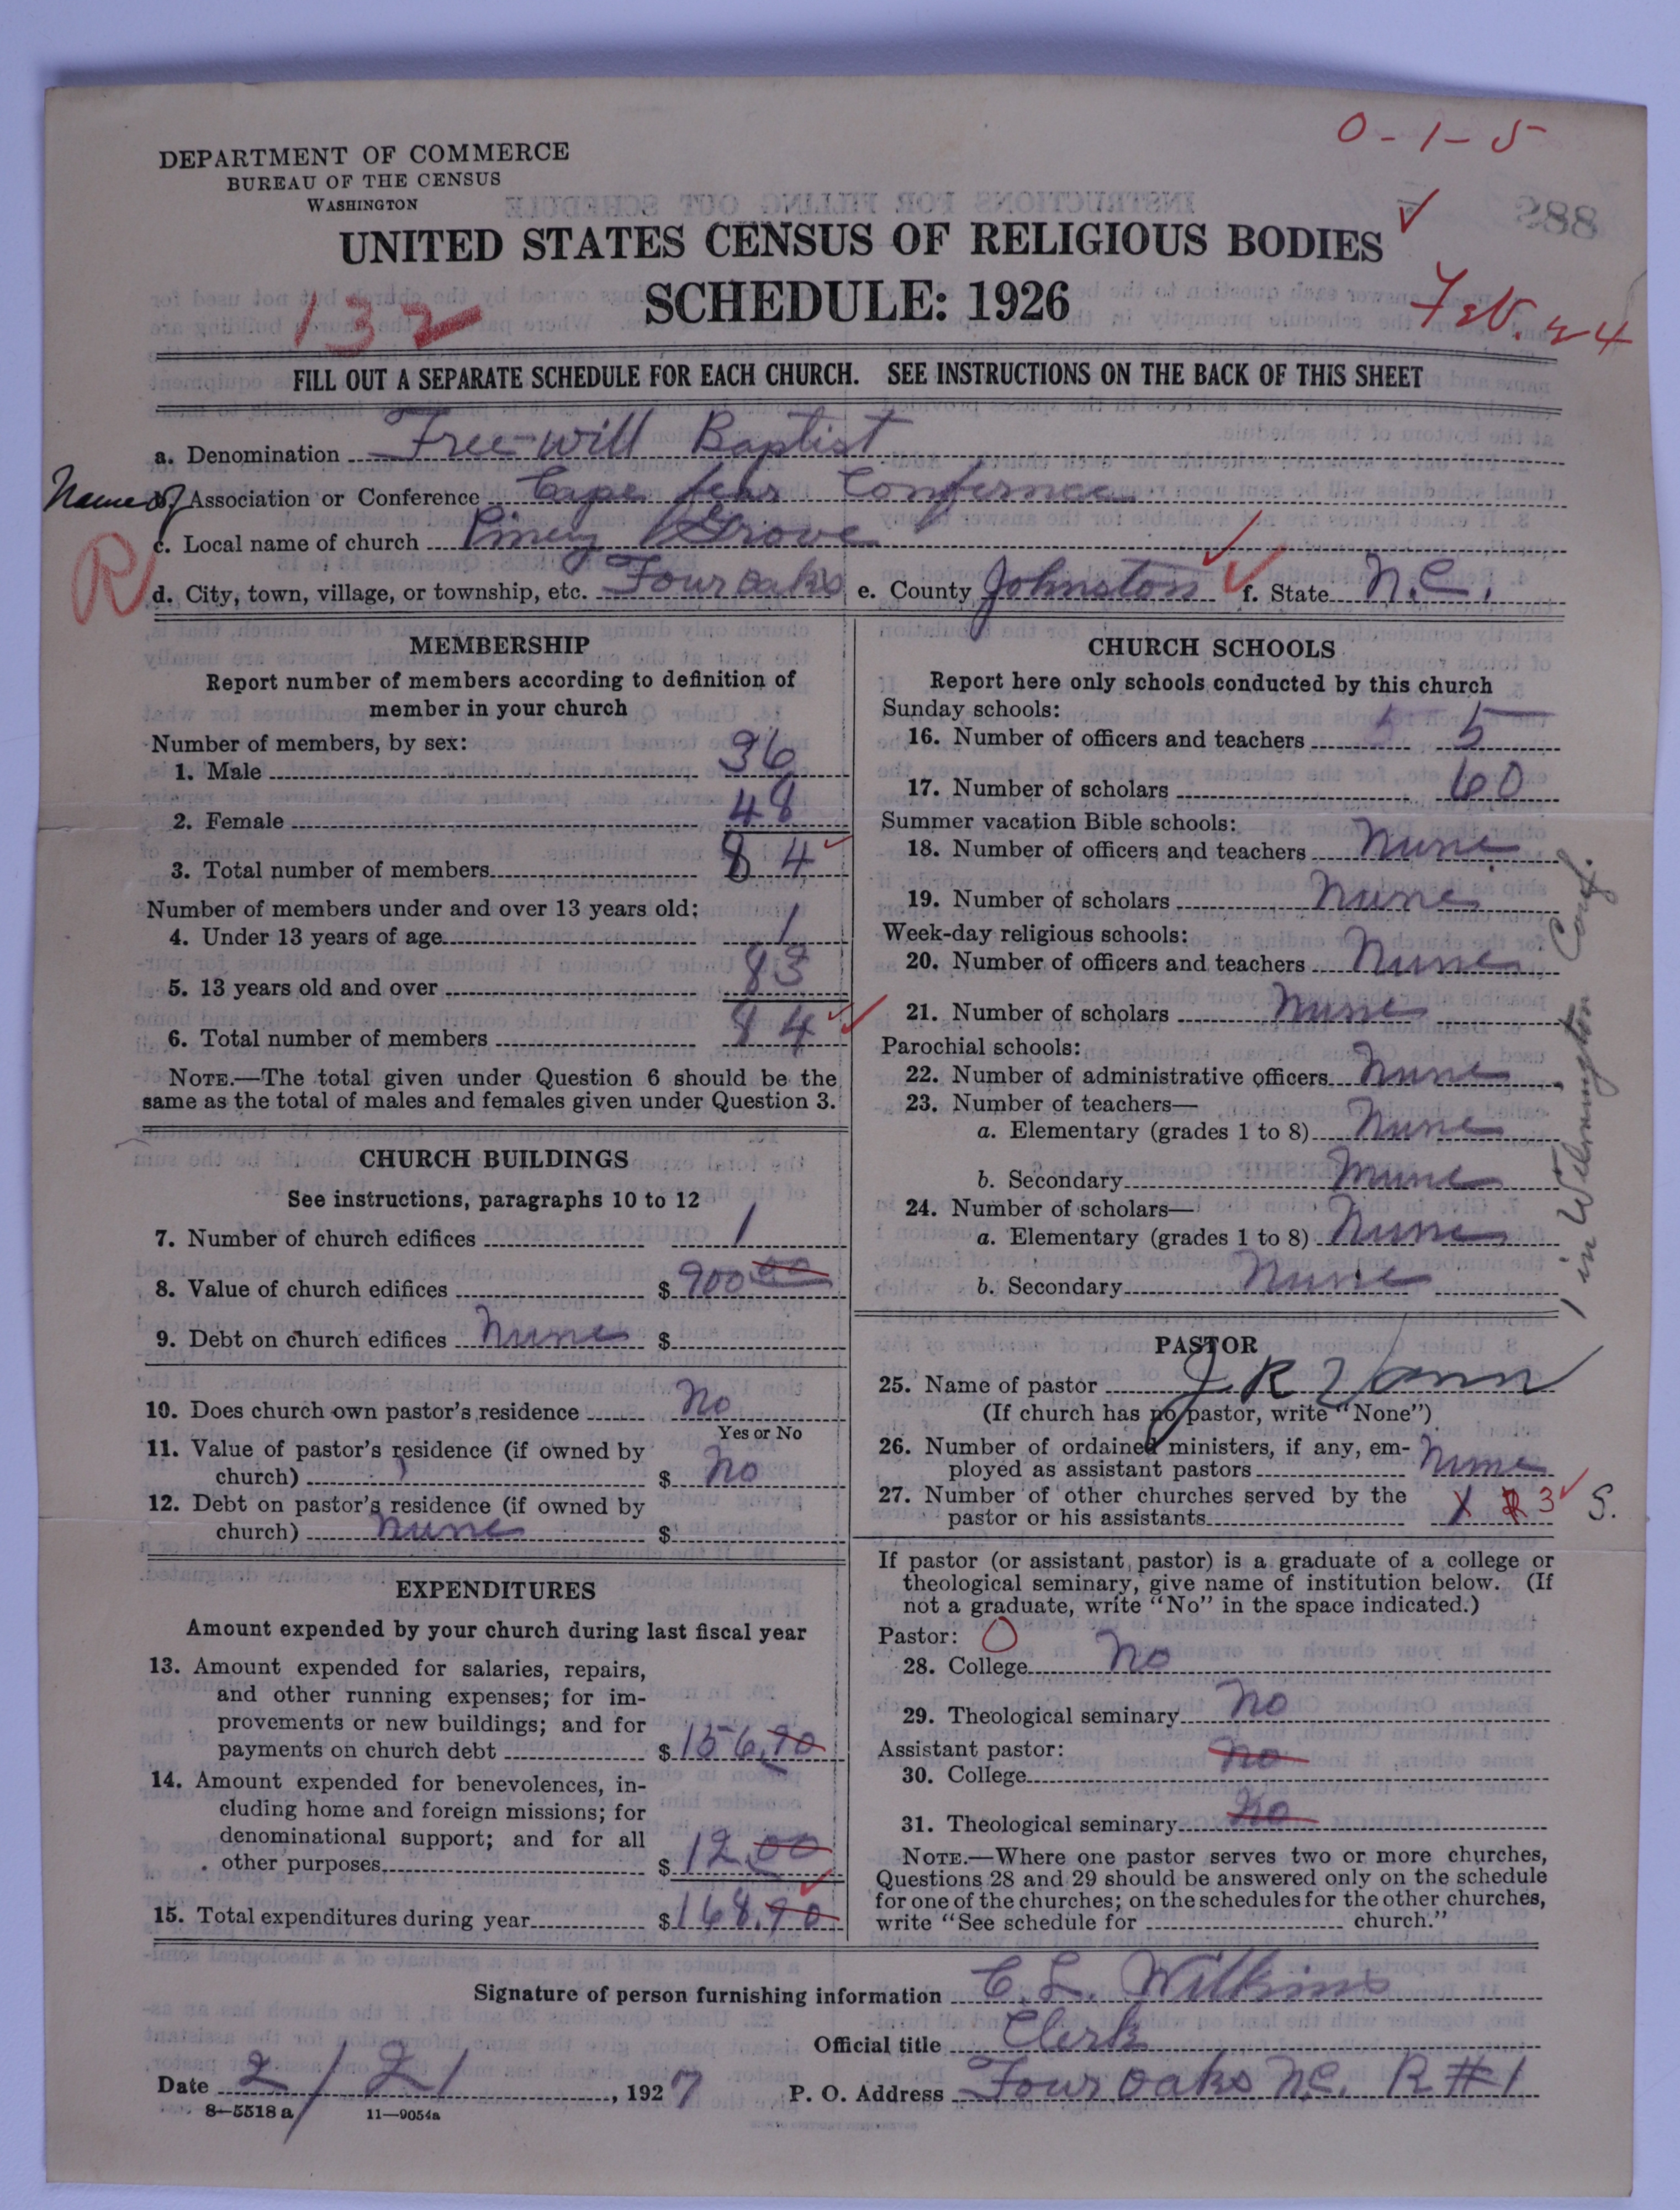 0-1-5
DEPARTMENT OF COMMERCE
BUREAU OF THE CENSUS
WASHINGTON
288
UNITED STATES CENSUS OF RELIGIOUS BODIES
SCHEDULE: 1926
132
Feb. 24
FILL OUT A SEPARATE SCHEDULE FOR EACH CHURCH. SEE INSTRUCTIONS ON THE BACK OF THIS SHEET
a. Denomination Free-will Baptist
Name of b. Association or Conference Cape fear Confernce
c. Local name of church Piney Grove
R
d. City, town, village, or township, etc. Four oaks e. County Johnston f. State N.C.
MEMBERSHIP
Report number of members according to definition of
member in your church
Number of members, by sex:
1. Male 36
2. Female 48
3. Total number of members 84
Number of members under and over 13 years old:
4. Under 13 years of age 1
5. 13 years old and over 83
6. Total number of members 84
NOTE.—The total given under Question 6 should be the
same as the total of males and females given under Question 3.
CHURCH BUILDINGS
See instructions, paragraphs 10 to 12
7. Number of church edifices 1
8. Value of church edifices $ 900 00
9. Debt on church edifices None $
10. Does church own pastor's residence No
Yes or No
11. Value of pastor's residence (if owned by
church) $ No
12. Debt on pastor's residence (if owned by
church) None $
EXPENDITURES
Amount expended by your church during last fiscal year
13. Amount expended for salaries, repairs,
and other running expenses; for im-
provements or new buildings; and for
payments on church debt $ 156.90
14. Amount expended for benevolences, in-
cluding home and foreign missions; for
denominational support; and for all
other purposes $ 12.00
15. Total expenditures during year $ 168.90
CHURCH SCHOOLS
Report here only schools conducted by this church
Sunday schools:
16. Number of officers and teachers 5 5
17. Number of scholars 60
Summer vacation Bible schools:
18. Number of officers and teachers None
19. Number of scholars None
Week-day religious schools:
20. Number of officers and teachers None
21. Number of scholars None
Parochial schools:
22. Number of administrative officers None
23. Number of teachers—
a. Elementary (grades 1 to 8) None
b. Secondary None
24. Number of scholars—
a. Elementary (grades 1 to 8) None
b. Secondary None
1 in Wilmington Conf.
PASTOR
25. Name of pastor J. R. Vann
(If church has no pastor, write "None")
26. Number of ordained ministers, if any, em-
ployed as assistant pastors None
27. Number of other churches served by the
pastor or his assistants 3 S.
If pastor (or assistant pastor) is a graduate of a college or
theological seminary, give name of institution below. (If
not a graduate, write "No" in the space indicated.)
Pastor: 0
28. College No
29. Theological seminary No
Assistant pastor:
30. College No
31. Theological seminary No
NOTE.—Where one pastor serves two or more churches,
Questions 28 and 29 should be answered only on the schedule
for one of the churches; on the schedules for the other churches,
write "See schedule for church."
Signature of person furnishing information C. L. Wilkins
Official title Clerk
Date 2/21, 1927 P. O. Address Four oaks N.C. R #1
8-5518 a 11—9054a